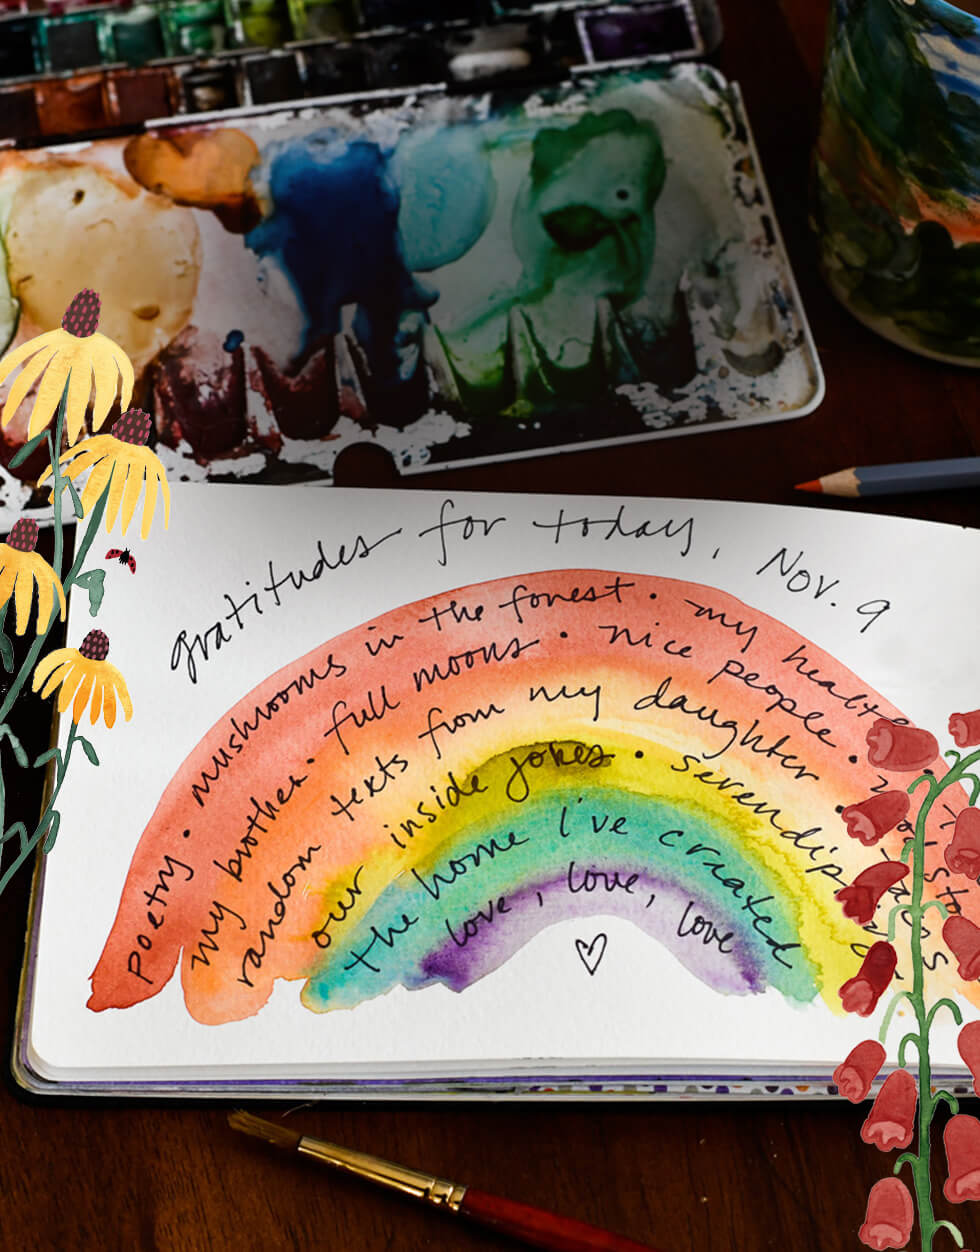 gratitudes for today, Nov. 9
poetry • mushrooms in the forest • my health
my brother • full moons • nice people •
random texts from my daughter •
our inside jokes • serendip
the home i've created
love, love, love